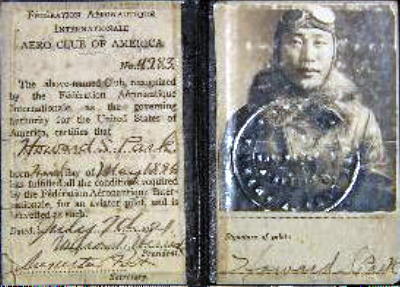 FÉDÉRATION AÉRONAUTIQUE
INTERNATIONALE
AERO CLUB OF AMERICA
No. 4283
The above-named Club, recognized
by the Fédération Aéronautique
Internationale, as the governing
authority for the United States of
America, certifies that
Howard S. Park
born day of May 1886
has fulfilled all the conditions required
by the Fédération Aéronautique Inter-
nationale, for an aviator pilot, and is
brevetted as such.
Dated
President.
Augustus Post
Secretary.
Signature of pilot:
Howard S. Park